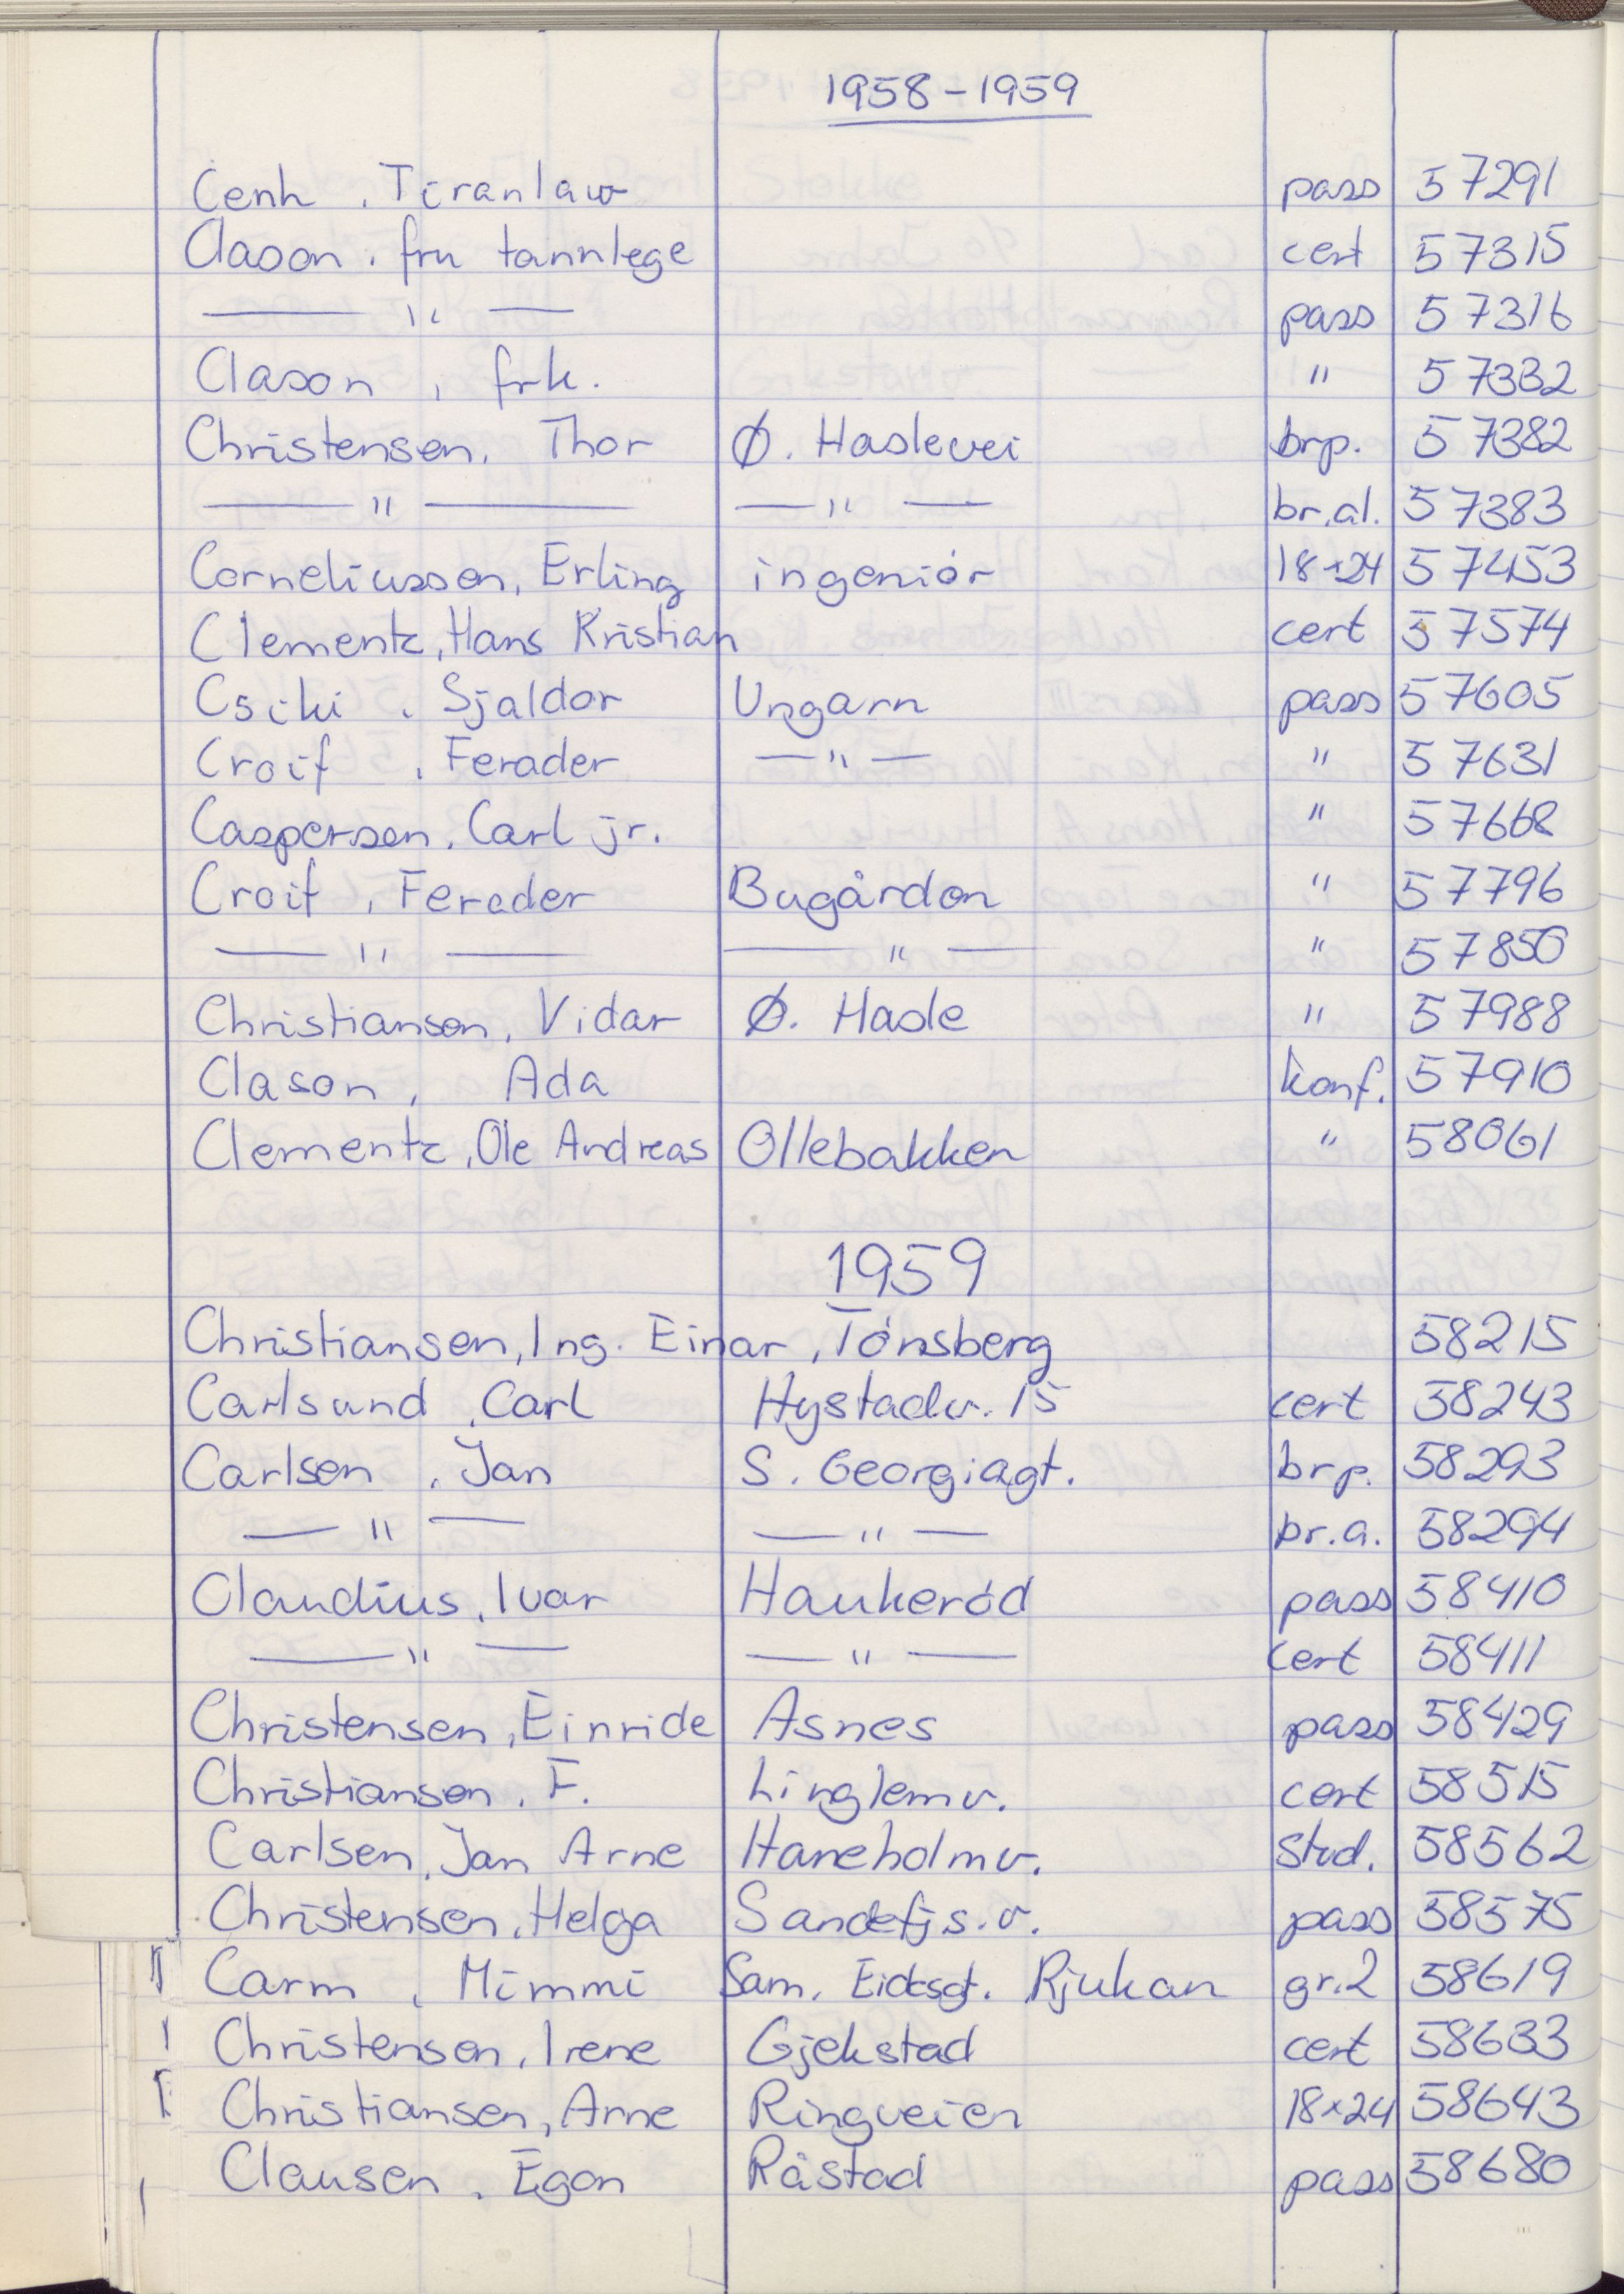 1958-1959
Cenh, Tiranlaw pass 57291
Clason, fru tannlege cert 57315
—— " —— pass 57316
Clason, frk. " 57332
Christensen, Thor Ø. Haslevei brp. 57382
—— " —— —— " —— br.al. 57383
Corneliussen, Erling ingeniör 18x24 57453
Clementz, Hans Kristian cert 57574
Csiki, Sjaldor Ungarn pass 57605
Croif, Ferader — " — " 57631
Caspersen, Carl jr. " 57668
Croif, Ferader Bugården " 57796
—— " —— —— " —— " 57850
Christiansen, Vidar Ø. Hasle " 57988
Clason, Ada konf. 57910
Clementz, Ole Andreas Ollebakken " 58061
1959
Christiansen, Ing. Einar, Tönsberg 58215
Carlsund, Carl Hystadv. 15 cert 58243
Carlsen, Jan S. Georgiagt. brp. 58293
— " — — " — br.a. 58294
Claudius, Ivar Haukeröd pass 58410
—— " — — " —— cert 58411
Christensen, Einride Asnes pass 58429
Christiansen, F. Linglemv. cert 58515
Carlsen, Jan Arne Haneholmv. Stud. 58562
Christensen, Helga Sandefj.s.v. pass 58575
Carm, Mimmi Sam. Eidesgt. Rjukan gr.2 58619
Christensen, Irene Gjekstad cert 58633
Christiansen, Arne Ringveien 18x24 58643
Clausen, Egon Råstad pass 58680